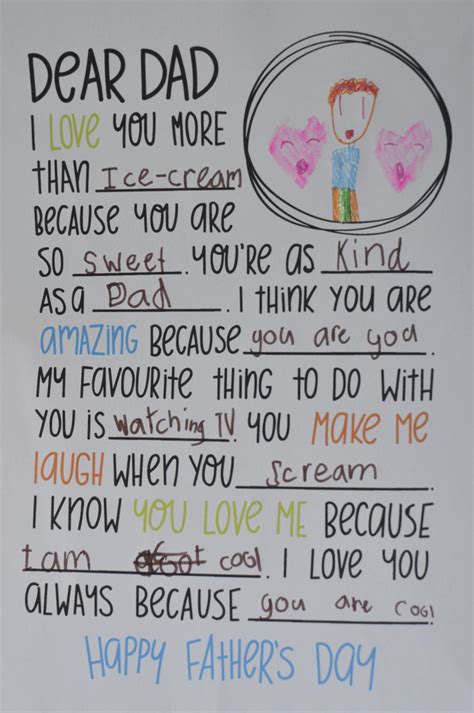 DEAR DAD
I LOVE YOU MORE
THAN Ice-cream
BECAUSE YOU ARE
SO sweet. YOU'RE AS Kind
AS A Dad. I THINK YOU ARE
AMAZING BECAUSE you are you.
MY FAVOURITE THING TO DO WITH
YOU IS watching TV. YOU MAKE ME
LAUGH WHEN YOU scream
I KNOW YOU LOVE ME BECAUSE
I am cool. I LOVE YOU
ALWAYS BECAUSE you are cool.
HAPPY FATHER'S DAY